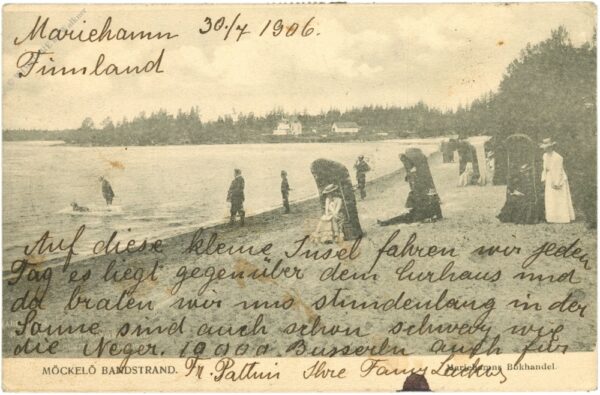 Mariehamn 30/7 1906.
Finnland
Auf diese kleine Insel fahren wir jeden
Tag es liegt gegenüber dem Curhaus und
da braten wir uns stundenlang in der
Sonne sind auch schon schwarz wie
die Neger. 10000 Busserln auch für
Fr. Pattini Ihre Fanny
MÖCKELÖ BANDSTRAND.
Mariehamns Bokhandel.